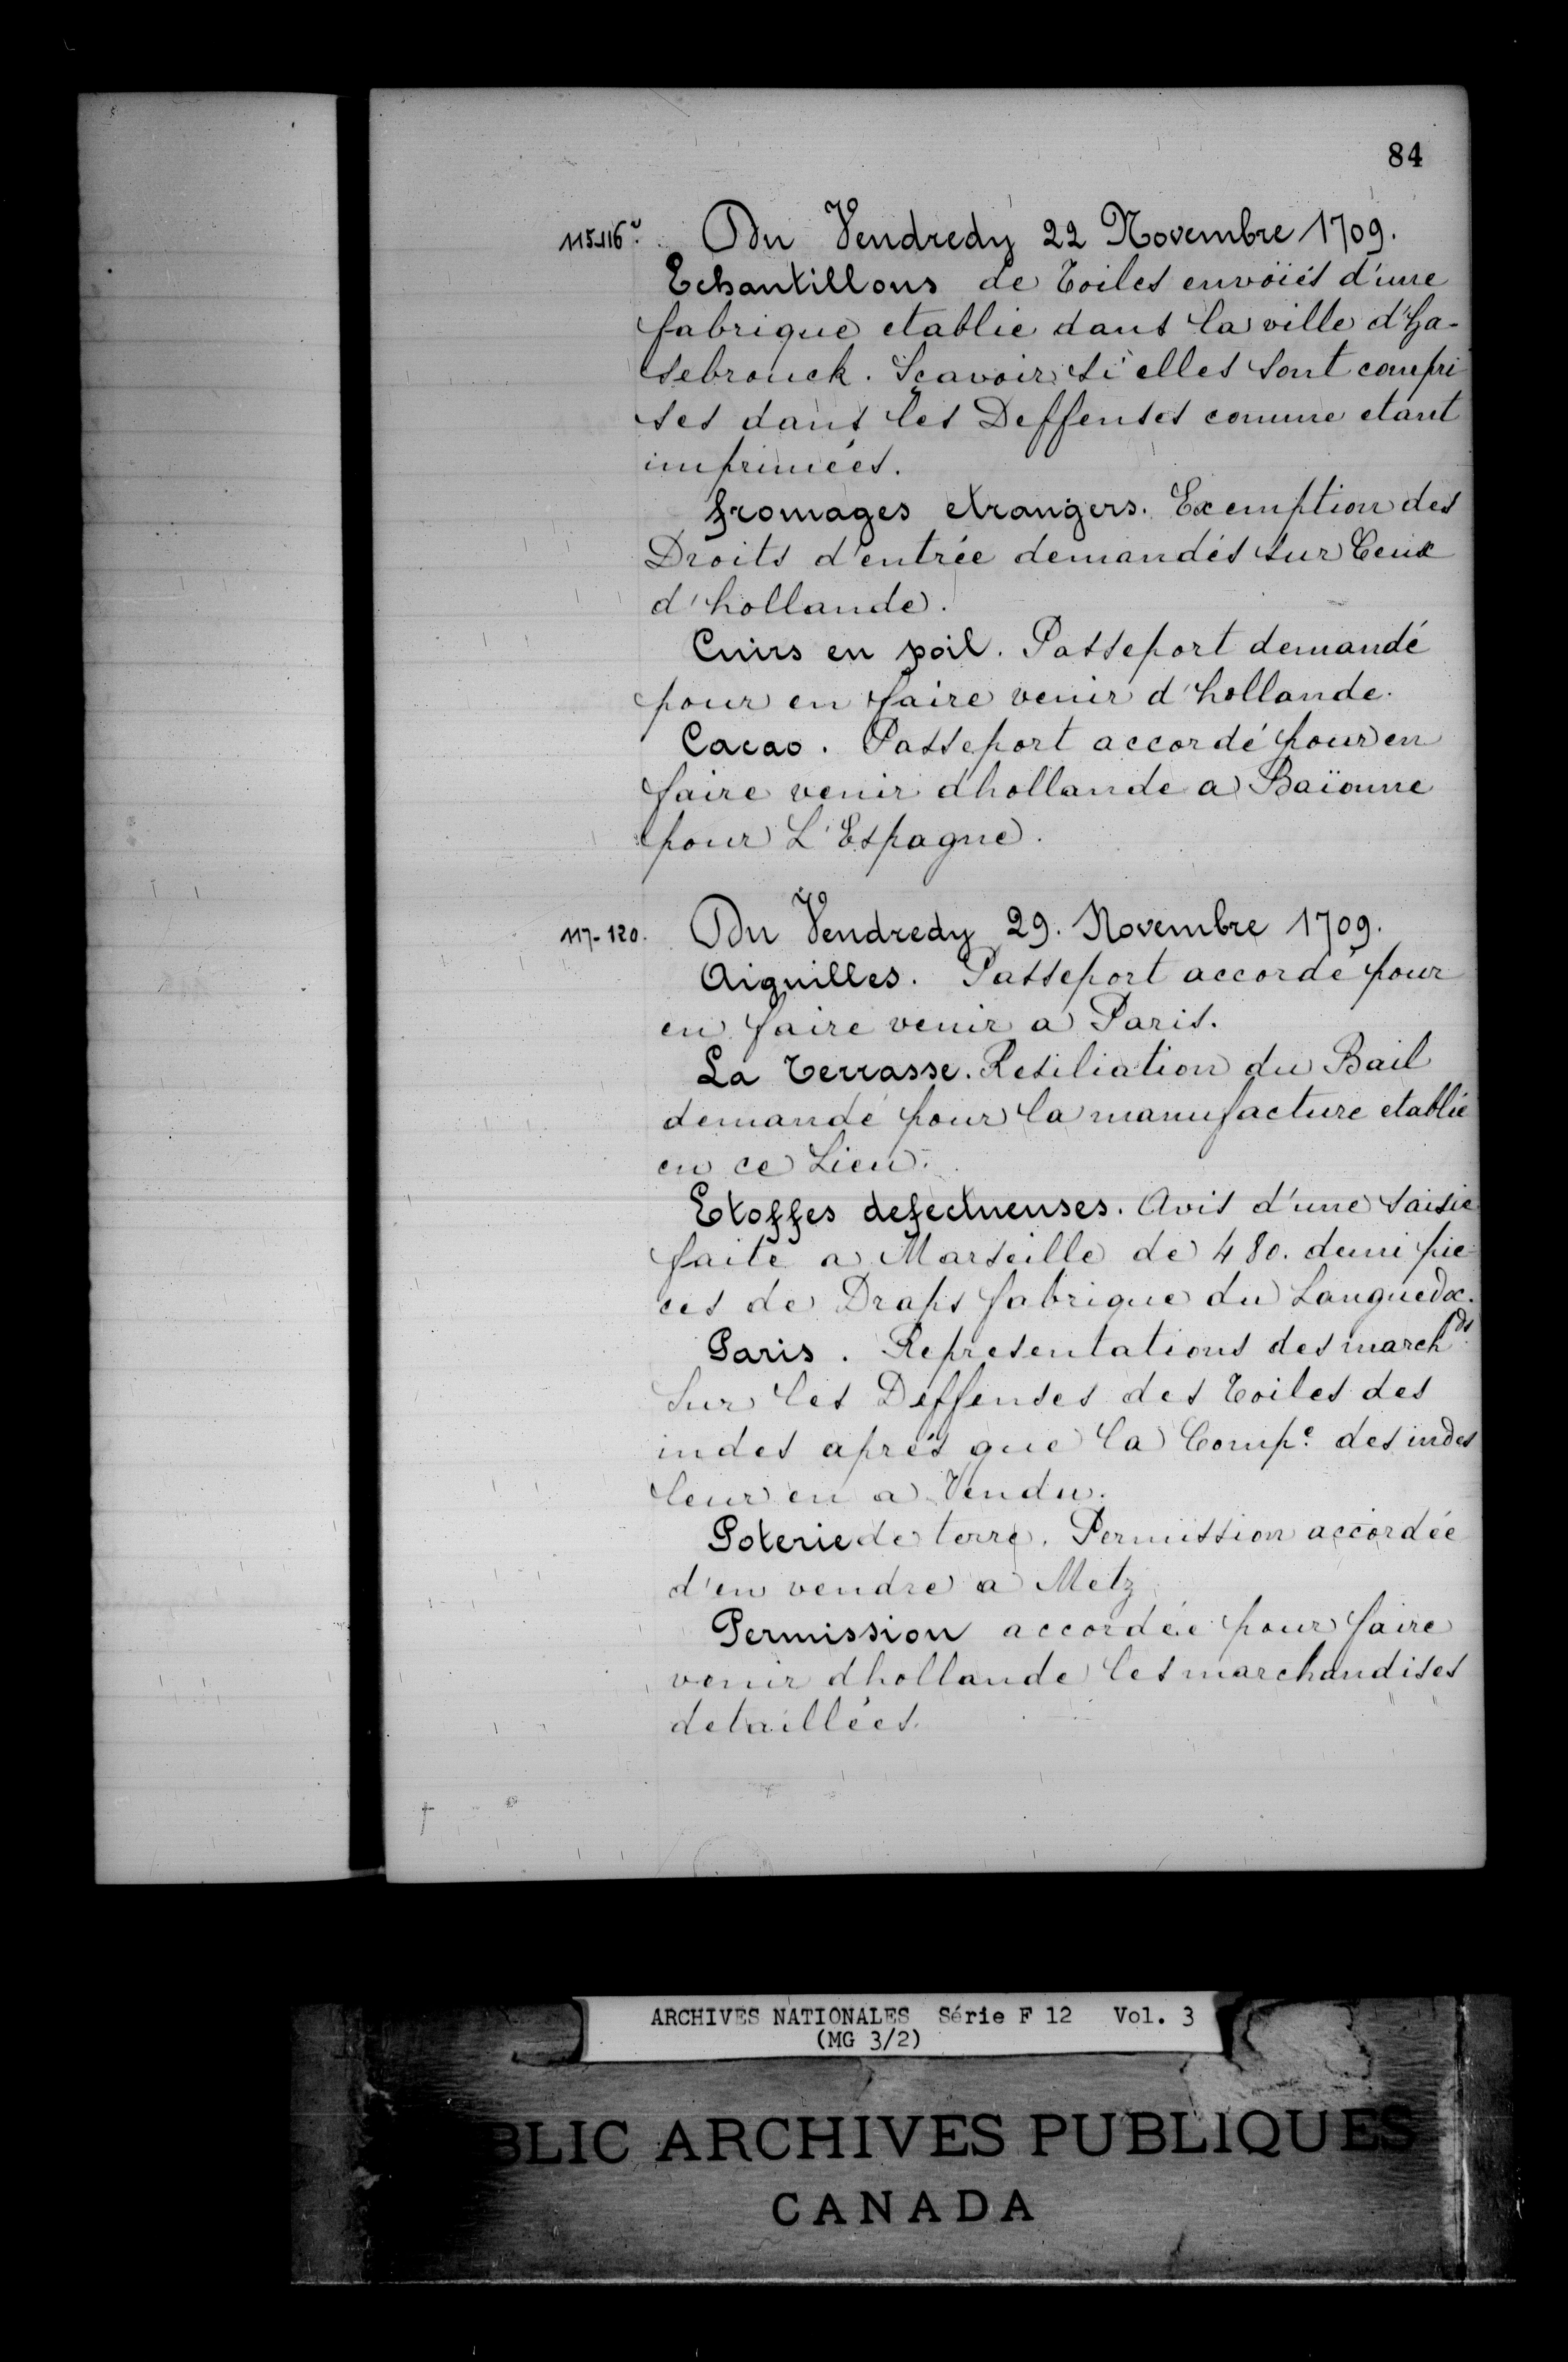 84
115-116v. Du Vendredy 22 Novembre 1709.
Echantillons de Toiles envoïés d'une
fabrique etablie dans la ville d'Ha-
sebrouck. Sçavoir si elles sont compri
ses dans les Deffenses comme etant
imprimées.
fromages etrangers. Exemption des
Droits d'entrée demandés sur Ceux
d'hollande.
Cuirs en poil. Passeport demandé
pour en faire venir d'hollande.
Cacao. Passeport accordé pour en
faire venir d'hollande a Baïonne
pour L'Espagne.
117-120. Du Vendredy 29. Novembre 1709.
Aiguilles. Passeport accordé pour
en faire venir a Paris.
La Terrasse. Resiliation du Bail
demandé pour la manufacture etablie
en ce Lieu.
Etoffes defectueuses. Avis d'une saisie
faite a Marseille de 480. demi pie
ces de Draps fabrique du Languedoc.
Paris. Representations des marchds.
Sur les Deffenses des Toiles des
indes aprés que la Compe. des indes
leur en a Vendu.
Poterie de terre. Permission accordée
d'en vendre a Metz
Permission accordée pour faire
venir d'hollande les marchandises
detaillées.
ARCHIVES NATIONALES Série F 12 Vol. 3
(MG 3/2)
BLIC ARCHIVES PUBLIQUES
CANADA